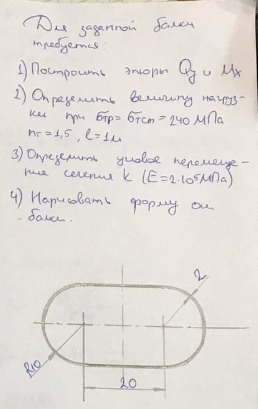 Для заданной балки
требуется:
1) Построить эпюры Qy и Mx
2) Определить величину нагруз-
ки при σтр = σтсж = 240 МПа
nт = 1,5 , l = 1м
3) Определить угловое перемеще-
ние сечения k (E = 2·10⁵МПа)
4) Нарисовать форму
балки.
2
R10
20